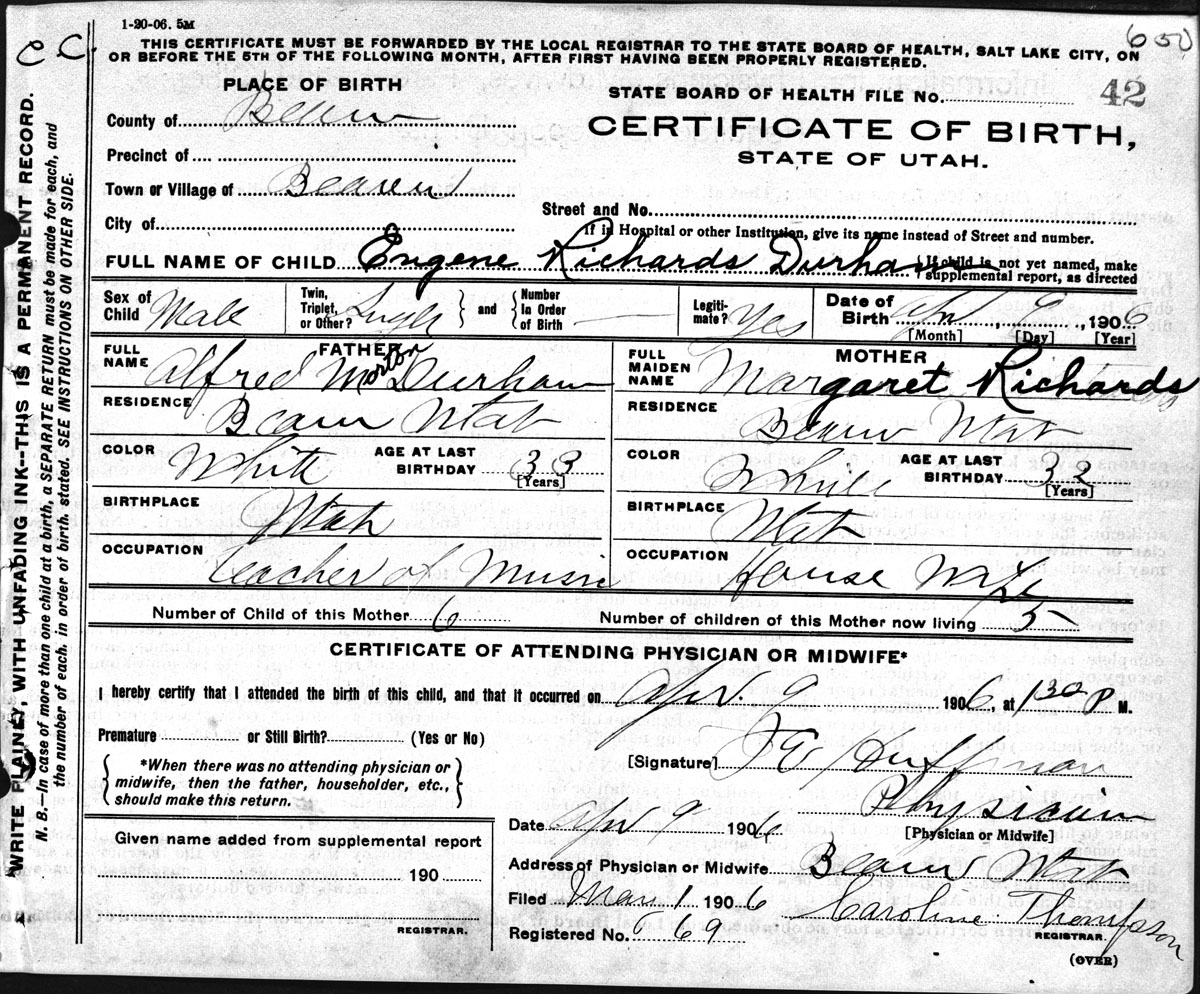 1-20-06. 5M
C C.
650
THIS CERTIFICATE MUST BE FORWARDED BY THE LOCAL REGISTRAR TO THE STATE BOARD OF HEALTH, SALT LAKE CITY, ON
OR BEFORE THE 5TH OF THE FOLLOWING MONTH, AFTER FIRST HAVING BEEN PROPERLY REGISTERED.
PLACE OF BIRTH
STATE BOARD OF HEALTH FILE No. 42
County of Beaver
CERTIFICATE OF BIRTH,
STATE OF UTAH.
Precinct of
Town or Village of Beaver
Street and No.
City of
If in Hospital or other Institution, give its name instead of Street and number.
FULL NAME OF CHILD Eugene Richards Durham
If child is not yet named, make
supplemental report, as directed
Sex of Child Male
Twin, Triplet, or Other? Single
and
Number In Order of Birth
Legiti- mate? Yes
Date of Birth Apr 9, 1906
[Month] [Day] [Year]
FATHER
FULL NAME Alfred Morton Durham
RESIDENCE Beaver Utah
COLOR White
AGE AT LAST BIRTHDAY 33
[Years]
BIRTHPLACE Utah
OCCUPATION Teacher of Music
MOTHER
FULL MAIDEN NAME Margaret Richards
RESIDENCE Beaver Utah
COLOR White
AGE AT LAST BIRTHDAY 32
[Years]
BIRTHPLACE Utah
OCCUPATION House Wife
Number of Child of this Mother 6
Number of children of this Mother now living 5
CERTIFICATE OF ATTENDING PHYSICIAN OR MIDWIFE*
I hereby certify that I attended the birth of this child, and that it occurred on Apr. 9 1906, at 1 30 P M.
Premature or Still Birth? (Yes or No)
*When there was no attending physician or
midwife, then the father, householder, etc.,
should make this return.
[Signature] Huffman
Physician
[Physician or Midwife]
Date Apr 9 1906
Address of Physician or Midwife Beaver Utah
Given name added from supplemental report
190
REGISTRAR.
Filed May 1 1906
Caroline Thompson
REGISTRAR.
Registered No. 69
(OVER)
WRITE PLAINLY, WITH UNFADING INK--THIS IS A PERMANENT RECORD.
N. B.—In case of more than one child at a birth, a SEPARATE RETURN must be made for each, and
the number of each, in order of birth, stated. SEE INSTRUCTIONS ON OTHER SIDE.